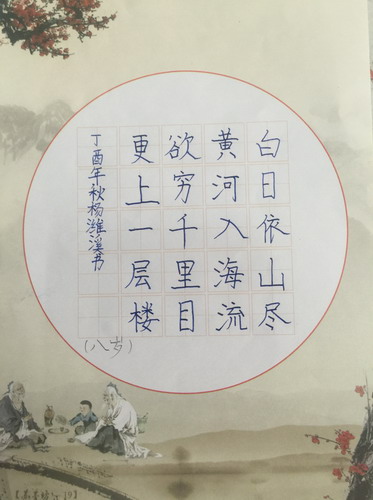 白日依山尽
黄河入海流
欲穷千里目
更上一层楼
丁酉年秋杨潍溪书
（八岁）